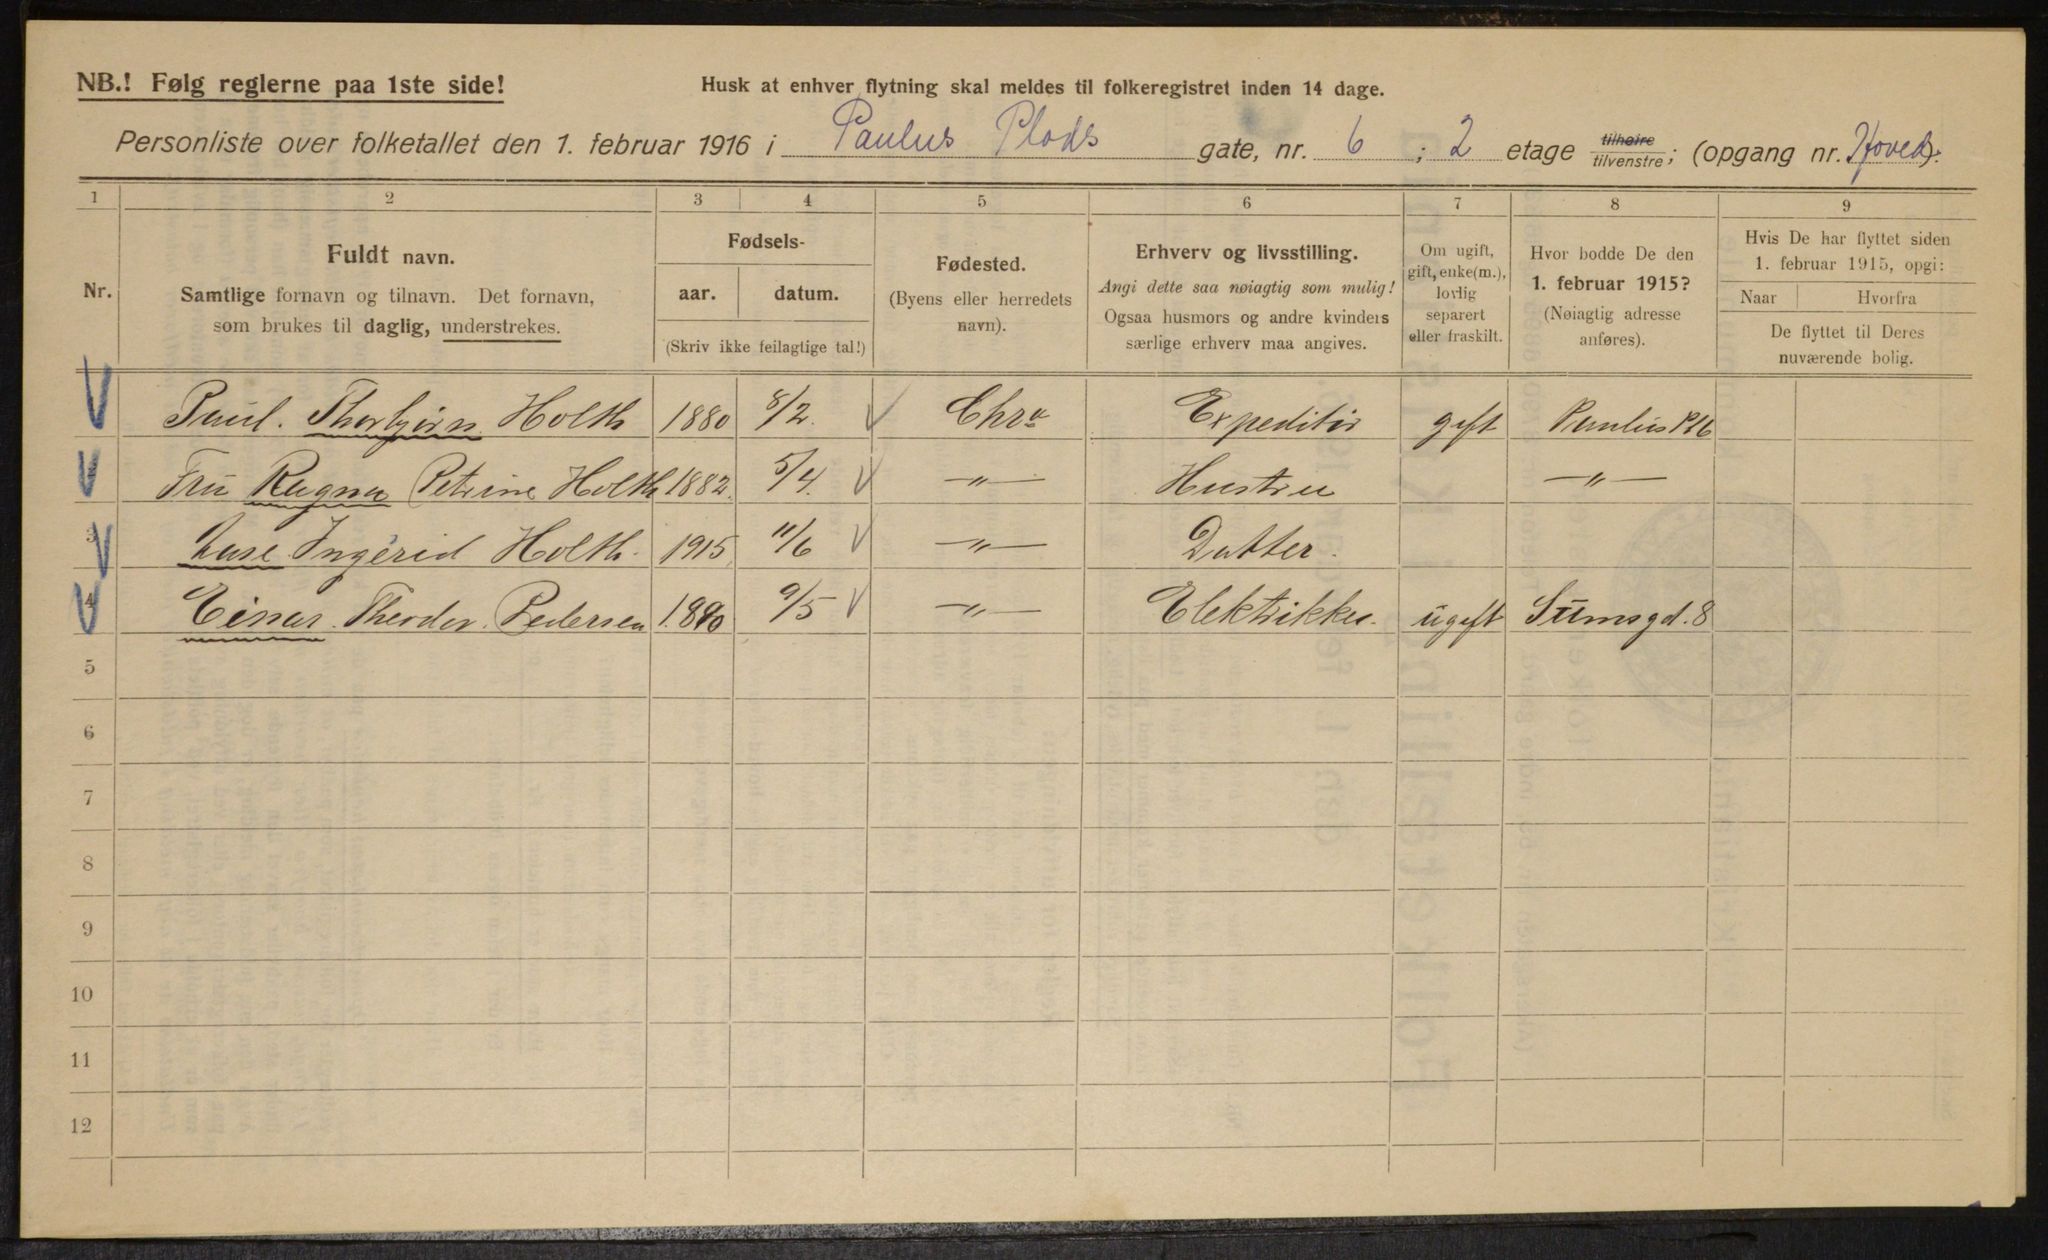 NB.! Følg reglerne paa 1ste side!
Husk at enhver flytning skal meldes til folkeregistret inden 14 dage.
Personliste over folketallet den 1. februar 1916 i Paulus Plads gate, nr. 6 ; 2 etage tilhøire tilvenstre ; (opgang nr. Hoved).
1 2 3 4 5 6 7 8 9
Nr.
Fuldt navn.
Samtlige fornavn og tilnavn. Det fornavn,
som brukes til daglig, understrekes.
Fødsels-
aar. datum.
(Skriv ikke feilagtige tal!)
Fødested.
(Byens eller herredets
navn).
Erhverv og livsstilling.
Angi dette saa nøiagtig som mulig!
Ogsaa husmors og andre kvinders
særlige erhverv maa angives.
Om ugift,
gift, enke(m.),
lovlig
separert
eller fraskilt.
Hvor bodde De den
1. februar 1915?
(Nøiagtig adresse
anføres).
Hvis De har flyttet siden
1. februar 1915, opgi:
Naar Hvorfra
De flyttet til Deres
nuværende bolig.
Paul. Thorbjørn Holth 1880 8/2. Chra Expeditør gift Paulus Pl 6
Fru Ragna Petrine Holth 1882. 5/4. —„— Hustru —„—
3 Aase Ingerid Holth. 1915. 11/6 —„— Datter.
4 Einar. Theodor. Pedersen 1890 9/5 —„— Elektriker. ugift Sumsgd. 8
5
6
7
8
9
10
11
12